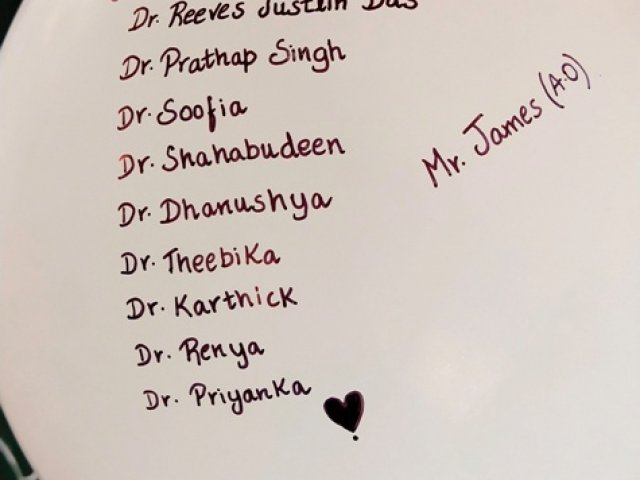 Dr. Reeves Justin Das
Dr. Prathap Singh
Dr. Soofia
Dr. Shahabudeen
Dr. Dhanushya
Dr. Theebika
Dr. Karthick
Dr. Renya
Dr. Priyanka
Mr. James (A.O)